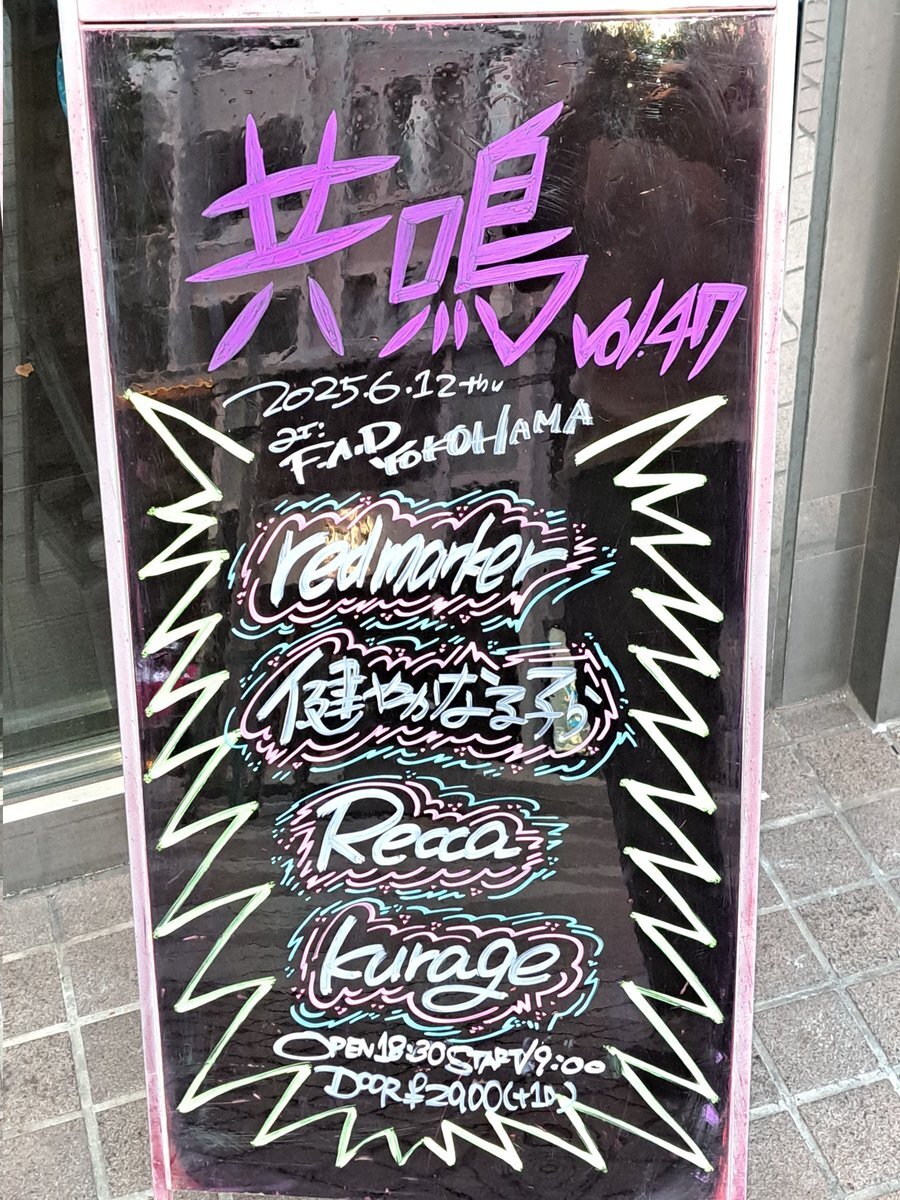 共鳴 vol.47
2025.6.12 thu
at:
F.A.D YOKOHAMA
redmarker
健やかなる子ら
Recca
kurage
OPEN 18:30 START 19:00
DOOR ¥2900(+1D)